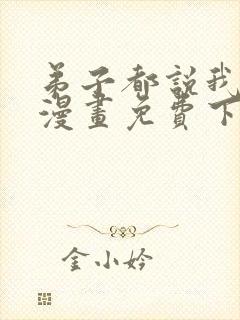 弟子都說我
漫畫免費下
金小妗